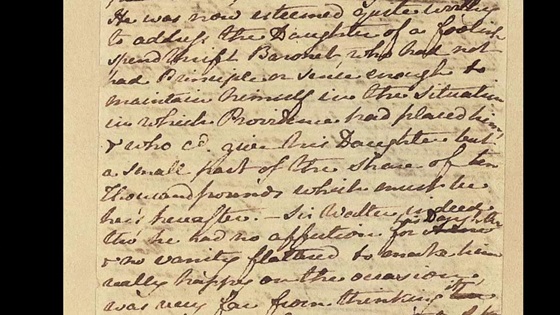 He was now esteemed quite worthy
to address the Daughter of a foolish
spendthrift Baronet, who had not
had Principle or sense enough to
maintain himself in the Situation
in which Providence had placed him,
& who cd. give his Daughter but
a small part of the share of ten
thousand pounds which must be
hers hereafter. — Sir Walter indeed
tho' he had no affection for his Daughter
& no vanity flattered to make him
really happy on the occasion,
was very far from thinking